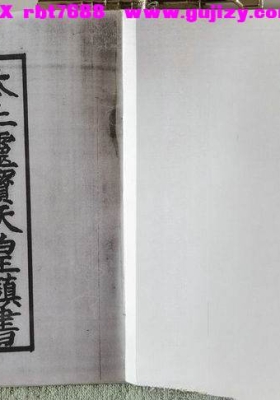 X rbt7688 www.gujizy.com
太上靈寳天皇鎮書